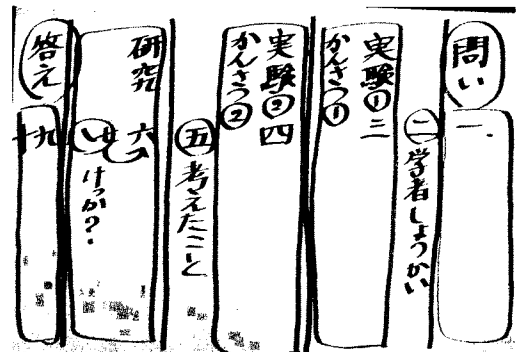 問い
一.
二 学者しょうかい
実験① 三
かんさつ①
実験② 四
かんさつ②
五 考えたこと
研究 六
七 けっか?.
答え
十 九